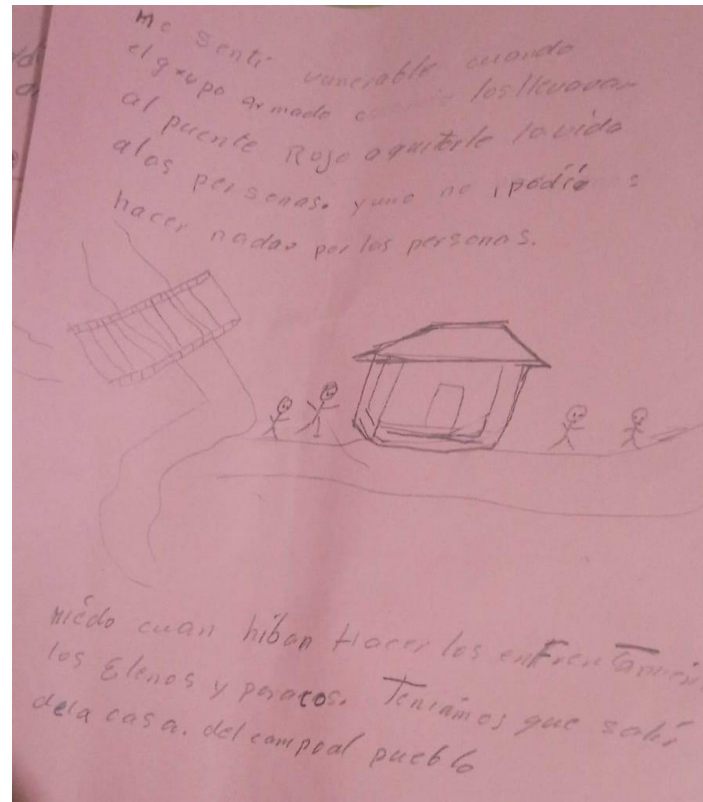 Me sentí vunerable cuando
el grupo armado los llevavan
al puente Rojo a quitarle la vida
alas personas. y uno no podía
hacer nada por las personas.
miédo cuan hiban Hacer los
los Elenos y paracos. Teniamos que salir
dela casa. del campo al pueblo